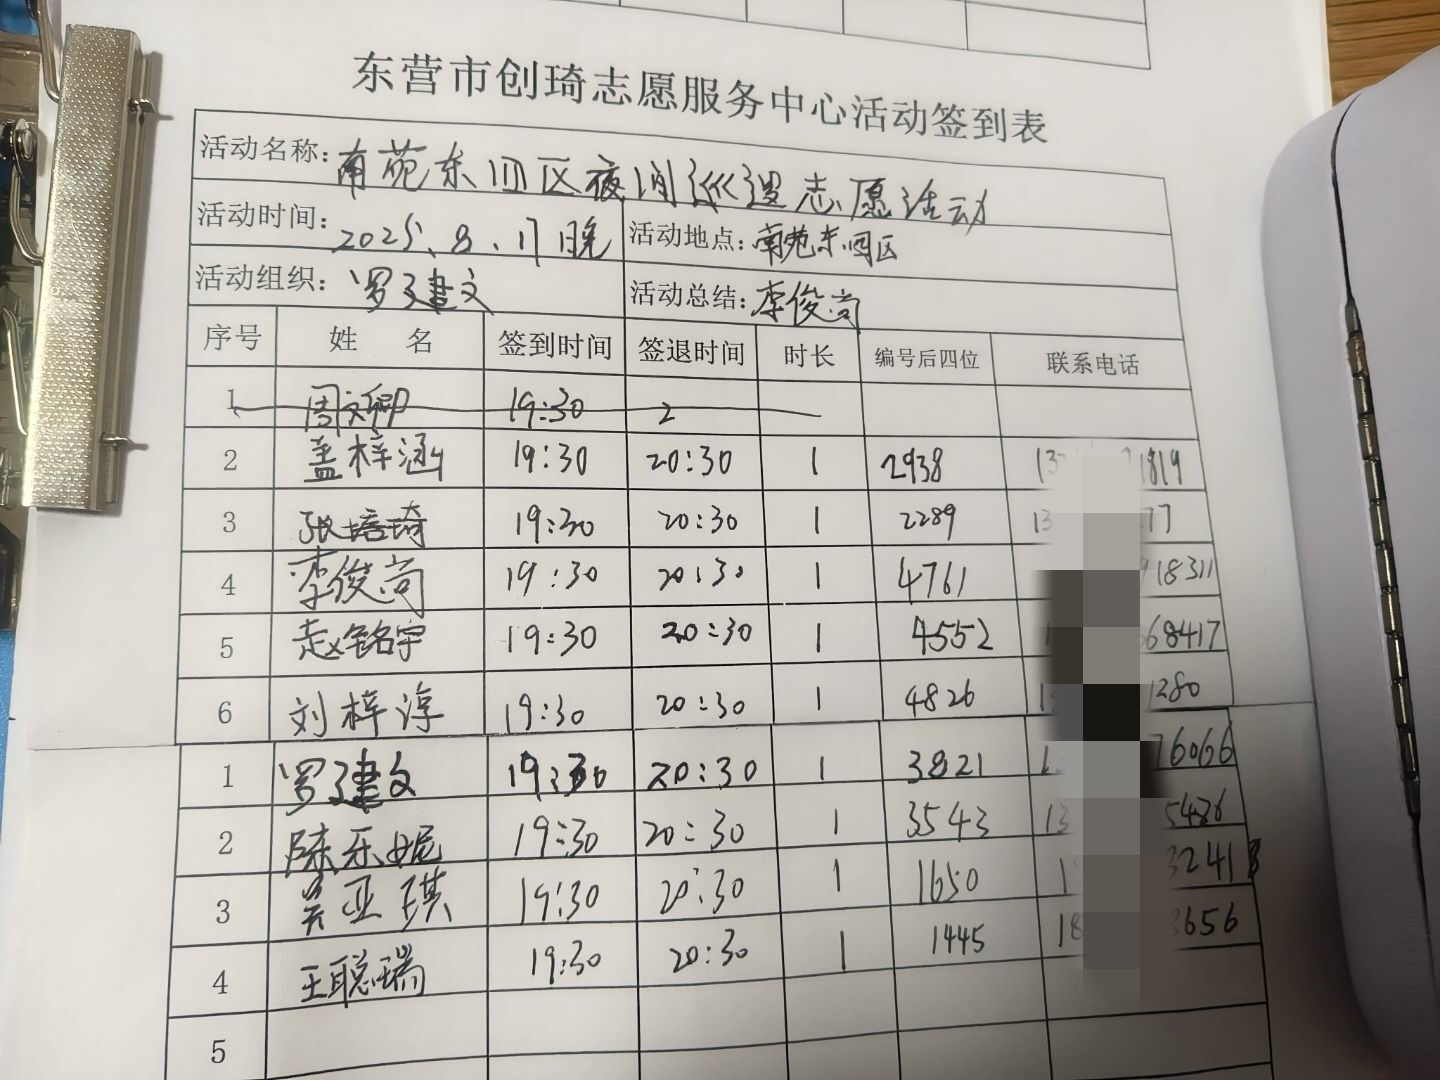 东营市创琦志愿服务中心活动签到表
活动名称: 南苑东四区夜间巡逻志愿活动
活动时间: 2025.8.17晚 活动地点: 南苑东四区
活动组织: 罗建文 活动总结: 李俊尚
序号 姓 名 签到时间 签退时间 时长 编号后四位 联系电话
1 周文卿 19:30 2
2 盖梓涵 19:30 20:30 1 2938 13 1819
3 张培琦 19:30 20:30 1 2289 13 77
4 李俊尚 19:30 20:30 1 4761 918311
5 赵铭宇 19:30 20:30 1 4552 68417
6 刘梓淳 19:30 20:30 1 4826 1280
1 罗建文 19:30 20:30 1 3821 76066
2 陈乐妮 19:30 20:30 1 3543 13 5486
3 吴亚琪 19:30 20:30 1 1650 1 3241
4 王聪瑞 19:30 20:30 1 1445 18 3656
5